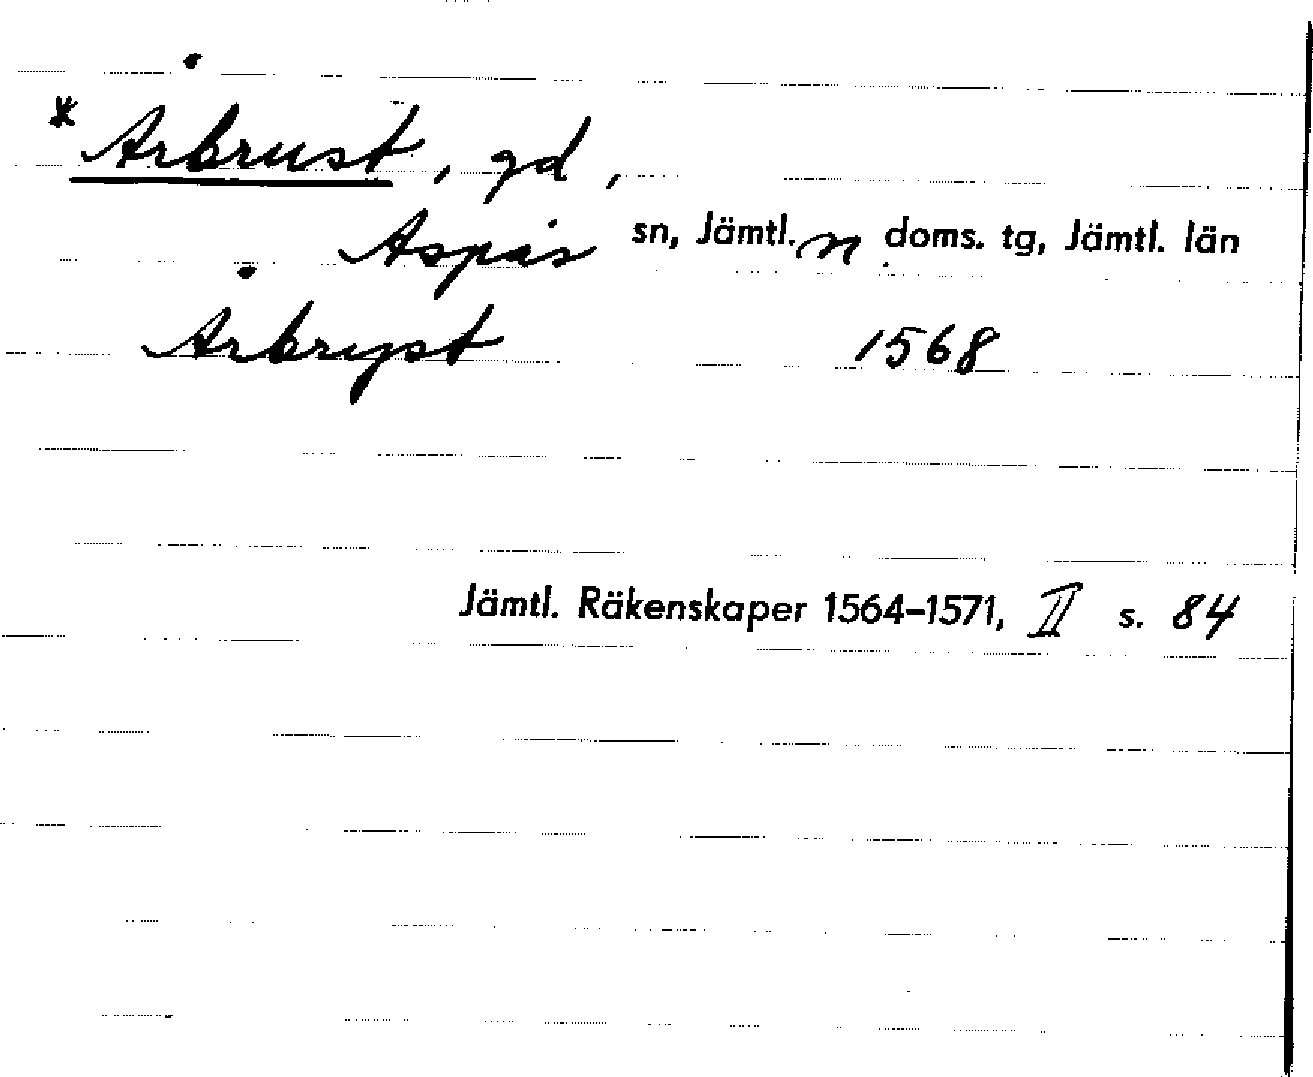 * Årbrust, gd,
Aspås sn, Jämtl. n doms. tg, Jämtl. län
Årbryst 1568
Jämtl. Räkenskaper 1564–1571, II s. 84